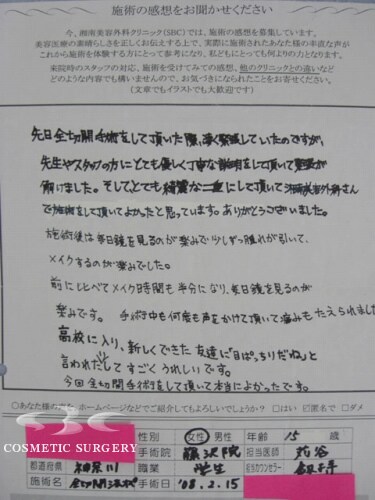 施術の感想をお聞かせください
今、湘南美容外科クリニック(SBC)では、施術の感想を募集しています。
美容医療の素晴らしさを正しくお伝えする上で、実際に施術されたあなた様の率直な声が
これから施術を体験する方にとって参考になり、私どもにとっても何よりの力となります。
来院時のスタッフの対応、施術を受けてみての感想、他のクリニックとの違いなど
どのような内容でも構いませんので、お気づきになられたことをお寄せください。
(文章でもイラストでも大歓迎です)
先日全切開手術をして頂いた際、凄く緊張していたのですが、
先生やスタッフの方にとても優しく丁寧な説明をして頂いて緊張が
解けました。そしてとても綺麗な二重にして頂いて湘南美容外科さん
で施術をして頂いてよかったと思っています。ありがとうございました。
施術後は毎日鏡を見るのが楽みで少しずつ腫れが引いて、
メイクするのが楽みでした。
前にくらべてメイク時間も半分になり、毎日鏡を見るのが
楽みです。 手術中も何度も声をかけて頂いて痛みもたえられました
高校に入り、新しくできた友達に「目ぱっちりだね」と
言われたりしてすごくうれしいです。
今回全切開手術をして頂いて本当によかったです。
○あなた様の ホームページなどでご紹介してもよろしいでしょうか? □はい ☑匿名で □ダメ
COSMETIC SURGERY
性別 女性 男性 年齢 15歳
手術院 藤沢院 担当医師
都道府県 神奈川 職業 学生 担当カウンセラー
施術名 全切開 手術日 '08.2.15